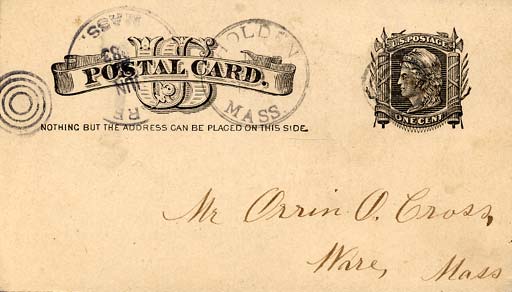 MASS.
WARE
JUN
HOLDEN
MASS
US
POSTAL CARD.
NOTHING BUT THE ADDRESS CAN BE PLACED ON THIS SIDE.
U.S. POSTAGE
ONE CENT
Mr Orrin O. Cross,
Ware, Mass